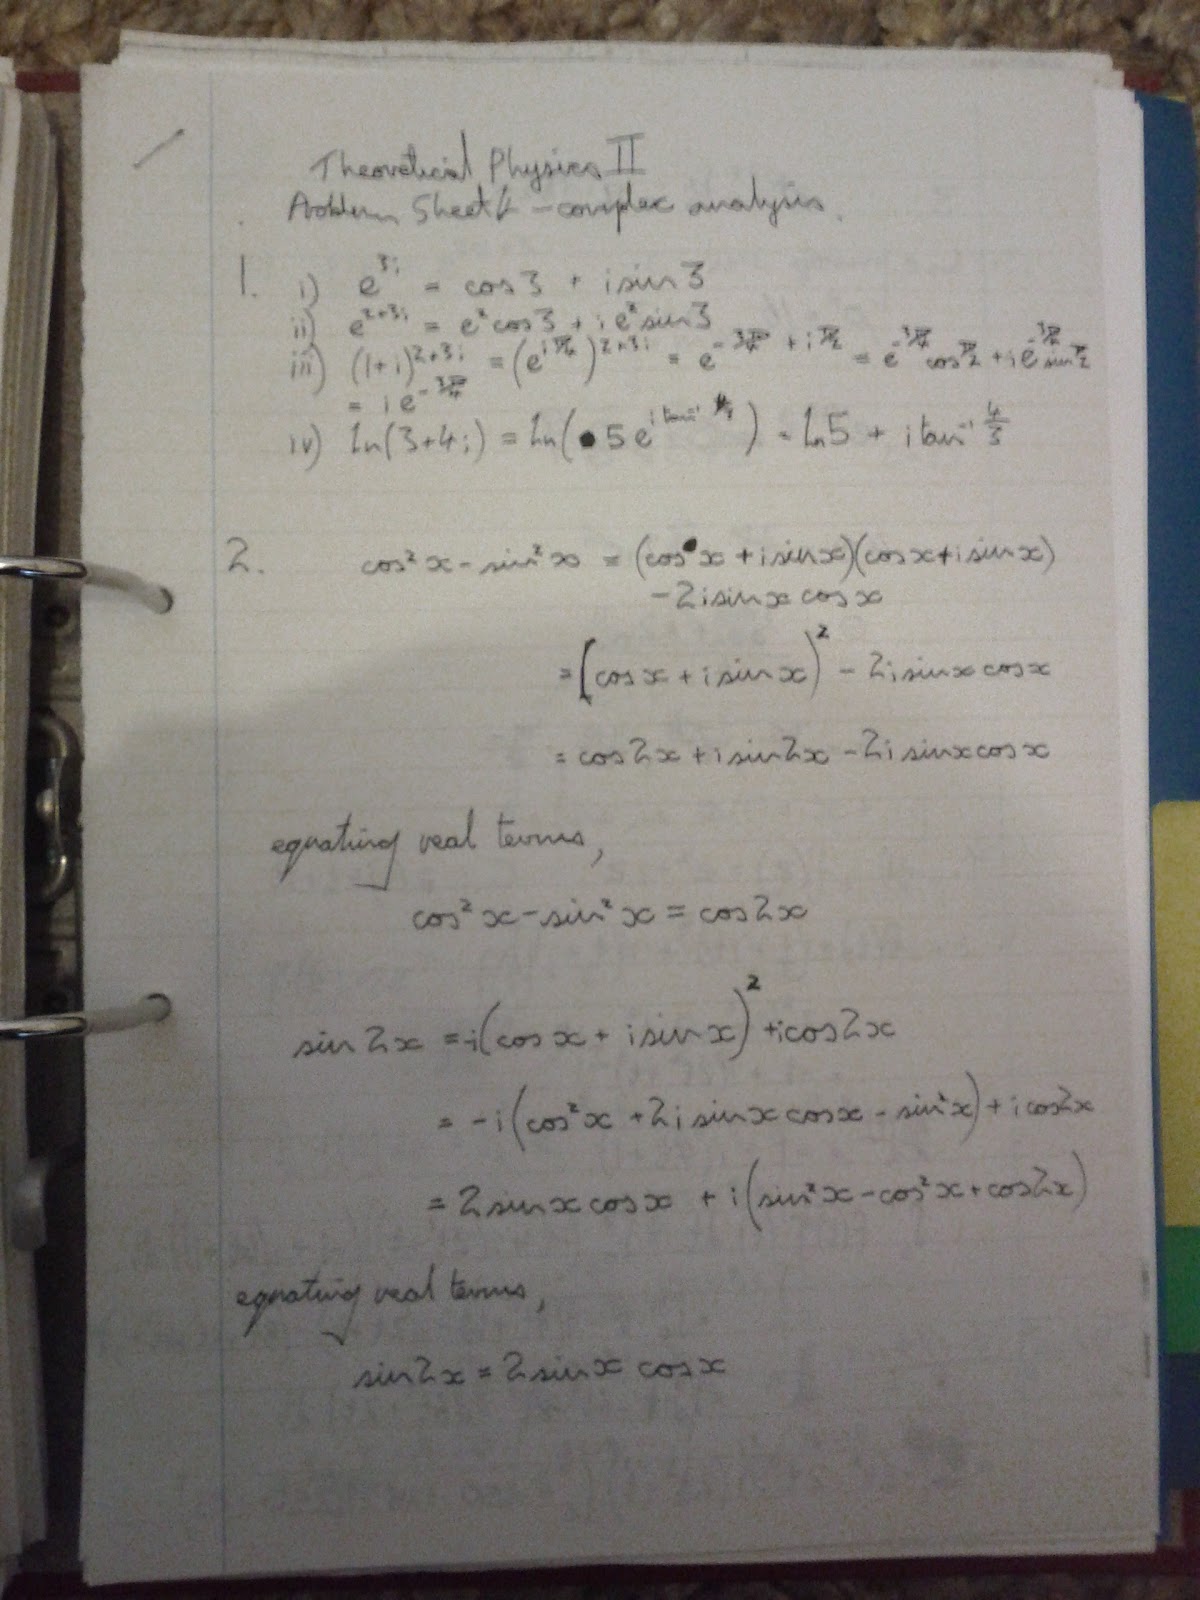 Theoretical Physics II
Problem Sheet – complex analysis.
1. i) e^{3i} = cos3 + i sin3
ii) e^{2+3i} = e²cos3 + i e²sin3
iii) (1+i)^{2+3i} = (e^{iπ/4})^{2+3i} = e^{-3π/4 + iπ/2} = e^{-3π/4} cos π/2 + i e^{-3π/4} sin π/2
= i e^{-3π/4}
iv) ln(3+4i) = ln(5e^{i tan⁻¹ 4/3}) = ln5 + i tan⁻¹ 4/3
2. cos²x - sin²x = (cos x + i sinx)(cosx + i sinx)
- 2i sinx cosx
= [cosx + i sinx)² - 2i sinx cosx
= cos2x + i sin2x - 2i sinx cosx
equating real terms,
cos²x - sin²x = cos2x
sin2x = -i(cosx + i sinx)² + i cos2x
= -i(cos²x + 2i sinx cosx - sin²x) + i cos2x
= 2 sinx cosx + i(sin²x - cos²x + cos2x)
equating real terms,
sin2x = 2 sinx cosx